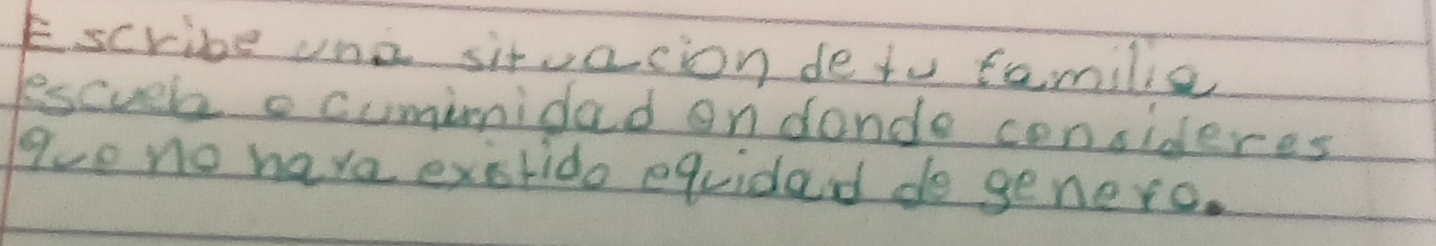 Escribe una situacion de tu familia
escuela o cumimnidad en donde consideres
que no haya existido equidad de genero.